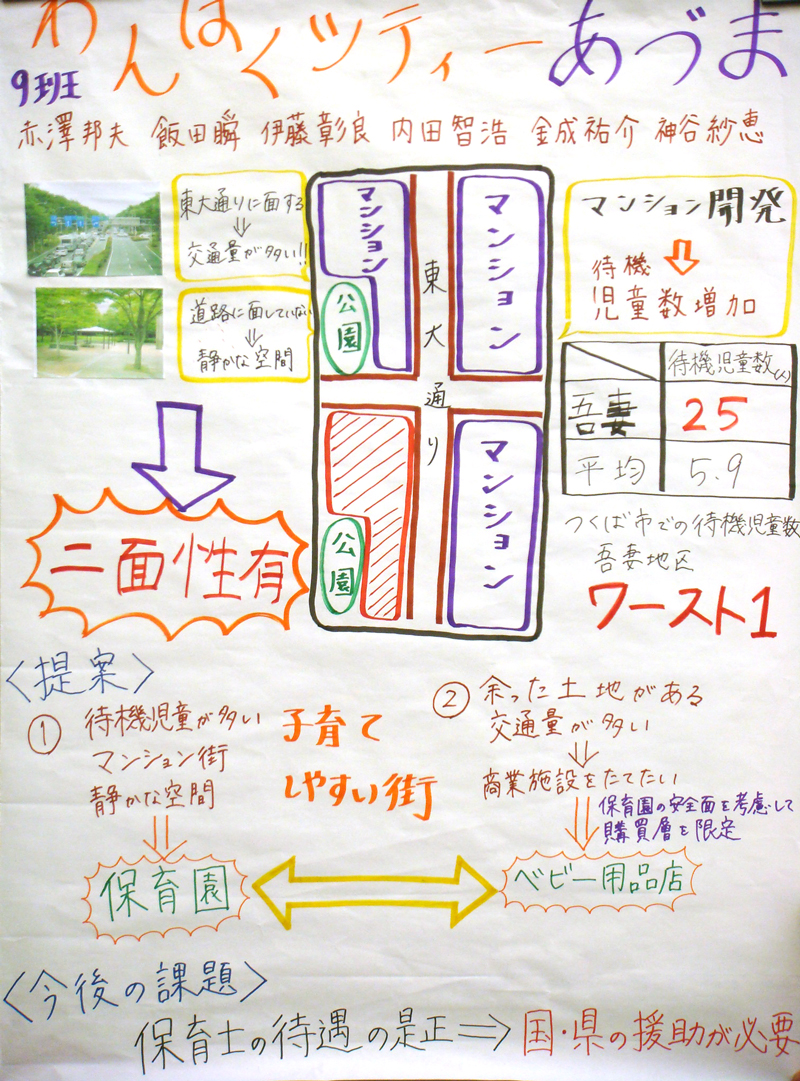 わんぱくツティーあづま
9班
赤澤邦夫 飯田瞬 伊藤彰良 内田智浩 金成祐介 神谷紗恵
東大通りに面する
⇓
交通量が多い!!
道路に面していない
⇓
静かな空間
二面性有
マンション
公園
マンション
東大通り
公園
マンション
マンション開発
⇓
待機
児童数増加
待機児童数(人)
吾妻 25
平均 5.9
つくば市での待機児童数
吾妻地区
ワースト1
〈提案〉
① 待機児童が多い
マンション街
静かな空間
⇓
保育園
子育て
しやすい街
② 余った土地がある
交通量が多い
⇓
商業施設をたてたい
⇓
保育園の安全面を考慮して
購買層を限定
ベビー用品店
〈今後の課題〉
保育士の待遇の是正⇒国・県の援助が必要